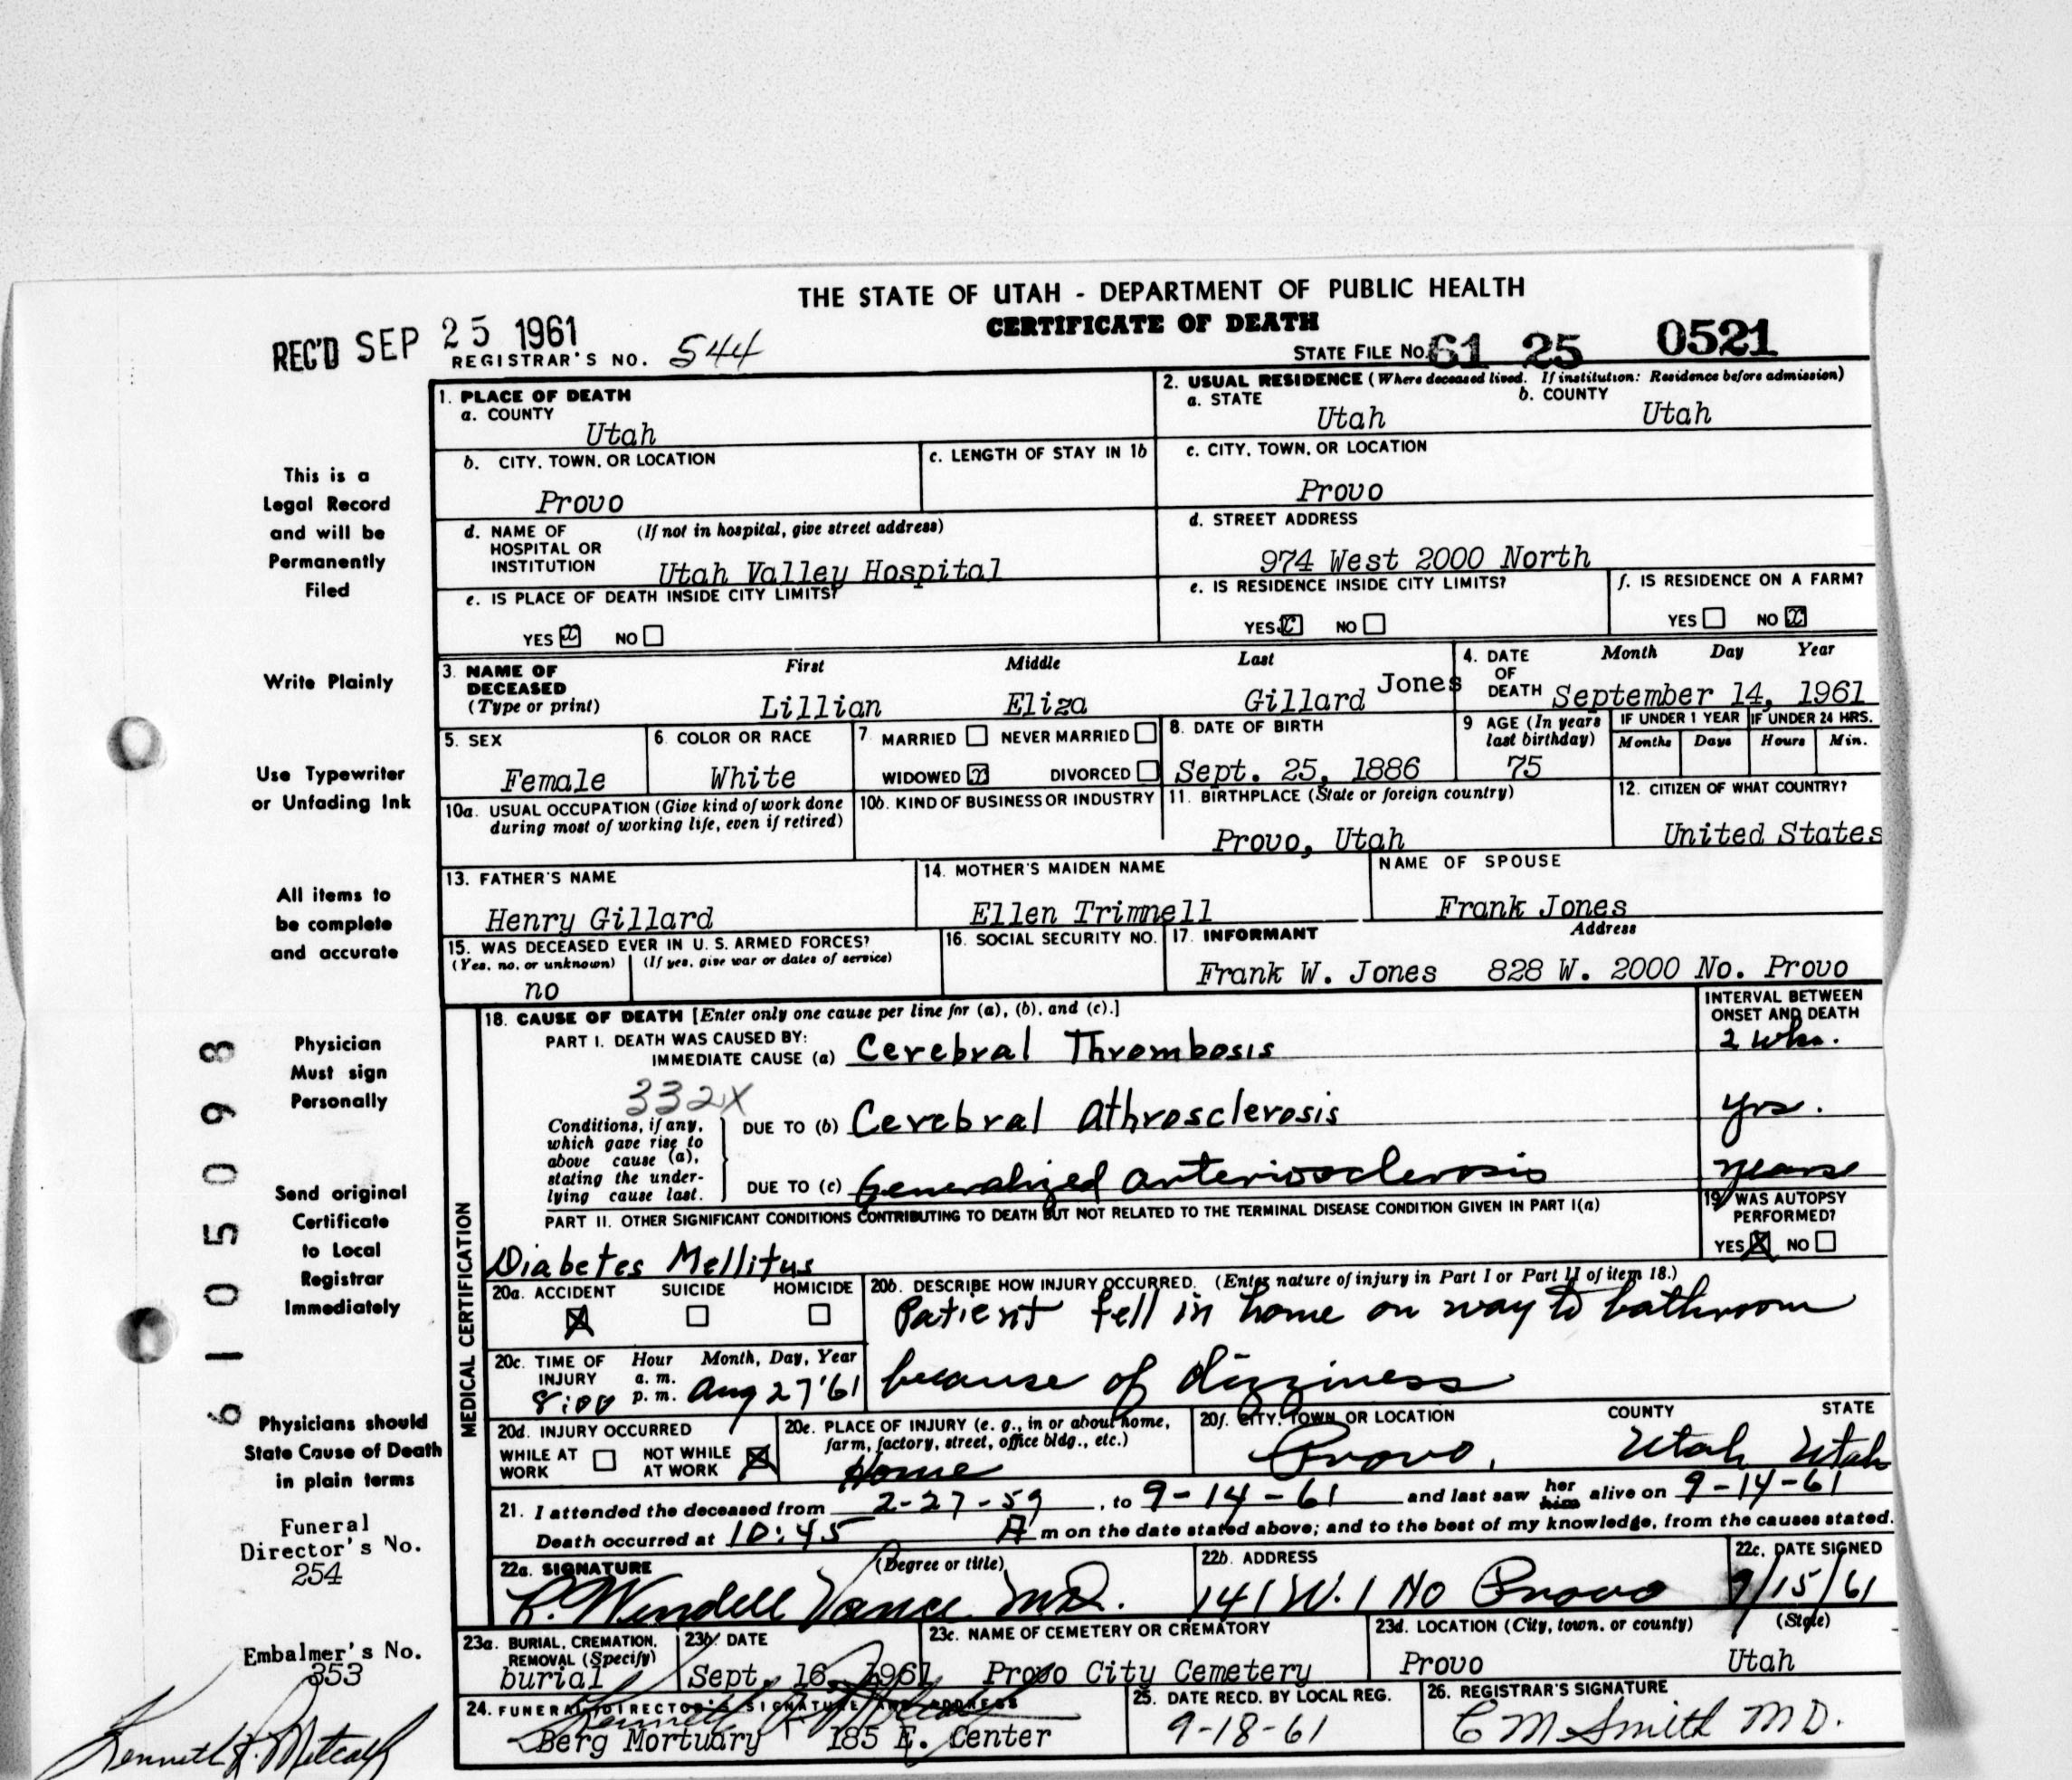 THE STATE OF UTAH - DEPARTMENT OF PUBLIC HEALTH
CERTIFICATE OF DEATH
REC'D SEP 25 1961
REGISTRAR'S NO. 544
STATE FILE NO. 61 25 0521
1. PLACE OF DEATH
a. COUNTY
Utah
2. USUAL RESIDENCE (Where deceased lived. If institution: Residence before admission)
a. STATE b. COUNTY
Utah Utah
b. CITY, TOWN, OR LOCATION
Provo
c. LENGTH OF STAY IN 1b
c. CITY, TOWN, OR LOCATION
Provo
d. NAME OF HOSPITAL OR INSTITUTION (If not in hospital, give street address)
Utah Valley Hospital
d. STREET ADDRESS
974 West 2000 North
e. IS PLACE OF DEATH INSIDE CITY LIMITS?
YES x NO
e. IS RESIDENCE INSIDE CITY LIMITS?
YES x NO
f. IS RESIDENCE ON A FARM?
YES NO x
3. NAME OF DECEASED (Type or print)
First Middle Last
Lillian Eliza Gillard Jones
4. DATE OF DEATH Month Day Year
September 14, 1961
5. SEX
Female
6. COLOR OR RACE
White
7. MARRIED NEVER MARRIED
WIDOWED x DIVORCED
8. DATE OF BIRTH
Sept. 25, 1886
9 AGE (In years last birthday)
75
IF UNDER 1 YEAR IF UNDER 24 HRS.
Months Days Hours Min.
10a. USUAL OCCUPATION (Give kind of work done during most of working life, even if retired)
10b. KIND OF BUSINESS OR INDUSTRY
11. BIRTHPLACE (State or foreign country)
Provo, Utah
12. CITIZEN OF WHAT COUNTRY?
United States
13. FATHER'S NAME
Henry Gillard
14. MOTHER'S MAIDEN NAME
Ellen Trimnell
NAME OF SPOUSE
Frank Jones
15. WAS DECEASED EVER IN U. S. ARMED FORCES?
(Yes, no, or unknown) (If yes, give war or dates of service)
no
16. SOCIAL SECURITY NO.
17. INFORMANT Address
Frank W. Jones 828 W. 2000 No. Provo
MEDICAL CERTIFICATION
18. CAUSE OF DEATH [Enter only one cause per line for (a), (b), and (c).]
INTERVAL BETWEEN ONSET AND DEATH
PART I. DEATH WAS CAUSED BY:
IMMEDIATE CAUSE (a) Cerebral Thrombosis 2 wks.
332X
Conditions, if any, which gave rise to above cause (a), stating the underlying cause last.
DUE TO (b) Cerebral Athrosclerosis yrs.
DUE TO (c) Generalized arteriosclerosis years
PART II. OTHER SIGNIFICANT CONDITIONS CONTRIBUTING TO DEATH BUT NOT RELATED TO THE TERMINAL DISEASE CONDITION GIVEN IN PART I(a)
Diabetes Mellitus
19. WAS AUTOPSY PERFORMED?
YES X NO
20a. ACCIDENT SUICIDE HOMICIDE
X
20b. DESCRIBE HOW INJURY OCCURRED. (Enter nature of injury in Part I or Part II of item 18.)
Patient fell in home on way to bathroom
because of dizziness
20c. TIME OF INJURY Hour a. m. p. m. Month, Day, Year
8:00 Aug 27 '61
20d. INJURY OCCURRED
WHILE AT WORK NOT WHILE AT WORK X
20e. PLACE OF INJURY (e. g., in or about home, farm, factory, street, office bldg., etc.)
Home
20f. CITY, TOWN OR LOCATION COUNTY STATE
Provo, Utah Utah
21. I attended the deceased from 2-27-59, to 9-14-61 and last saw her him alive on 9-14-61
Death occurred at 10:45 A m on the date stated above; and to the best of my knowledge, from the causes stated.
22a. SIGNATURE (Degree or title)
R. Wendell Vance M.D.
22b. ADDRESS
141 W. 1 No Provo
22c. DATE SIGNED
9/15/61
23a. BURIAL, CREMATION, REMOVAL (Specify)
burial
23b. DATE
Sept. 16, 1961
23c. NAME OF CEMETERY OR CREMATORY
Provo City Cemetery
23d. LOCATION (City, town, or county) (State)
Provo Utah
24. FUNERAL DIRECTOR'S SIGNATURE AND ADDRESS
Berg Mortuary 185 E. Center
25. DATE RECD. BY LOCAL REG.
9-18-61
26. REGISTRAR'S SIGNATURE
C M Smith MD.
This is a
Legal Record
and will be
Permanently
Filed
Write Plainly
Use Typewriter
or Unfading Ink
All items to
be complete
and accurate
Physician
Must sign
Personally
Send original
Certificate
to Local
Registrar
Immediately
Physicians should
State Cause of Death
in plain terms
Funeral
Director's No.
254
Embalmer's No.
353
Kenneth R. Metcalf
61 05098